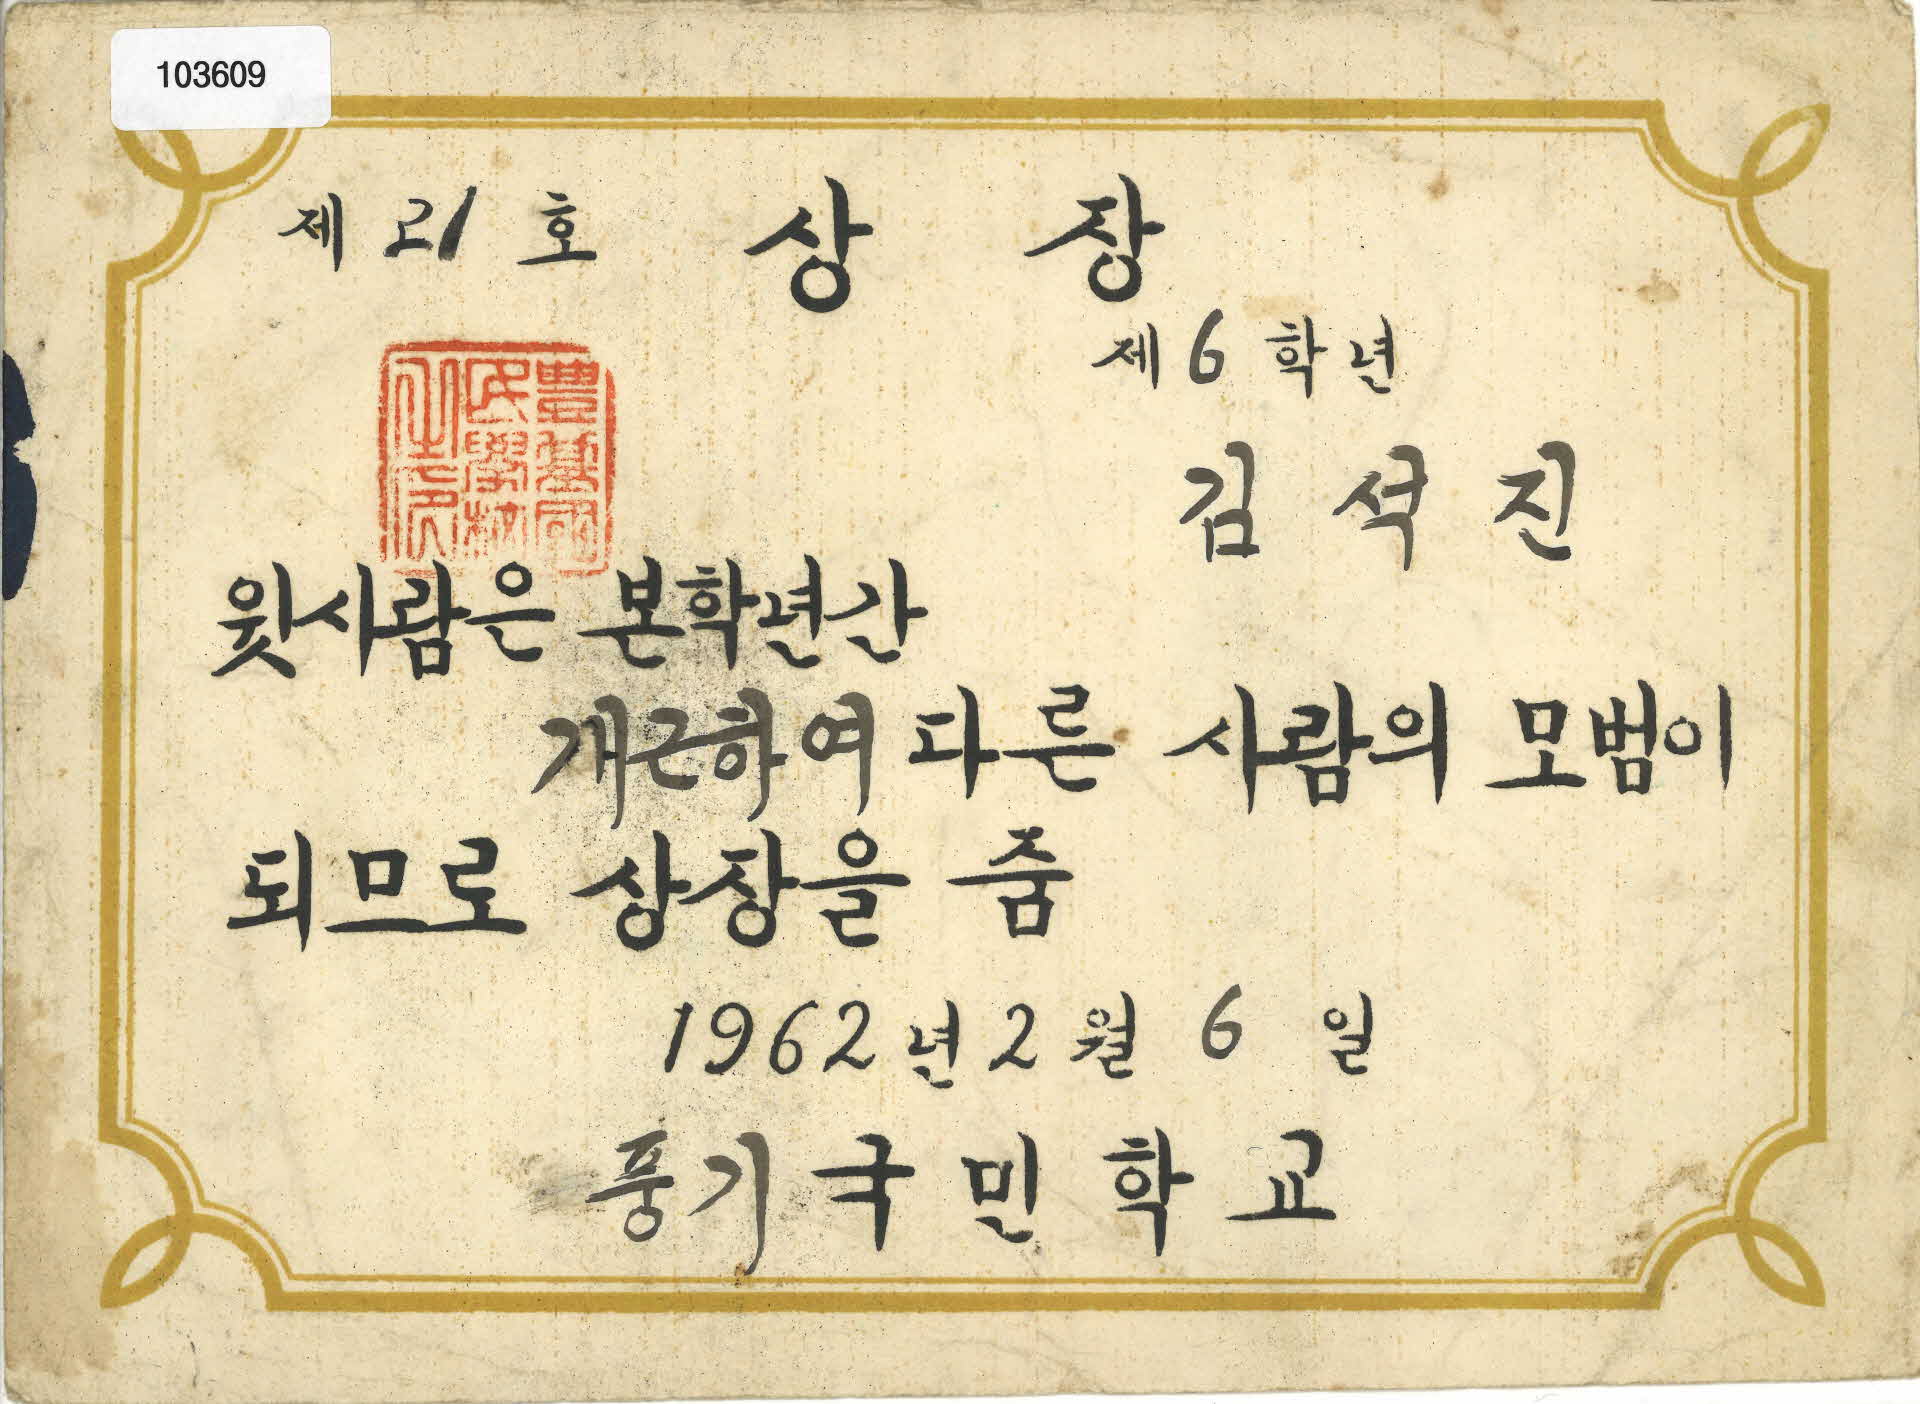 103609
제 21 호 상 장
제 6 학년
김 석 진
豊基國民學校之印
윗사람은 본학년간
개근하여 다른 사람의 모범이
되므로 상장을 줌
1962 년 2 월 6 일
풍기국민학교